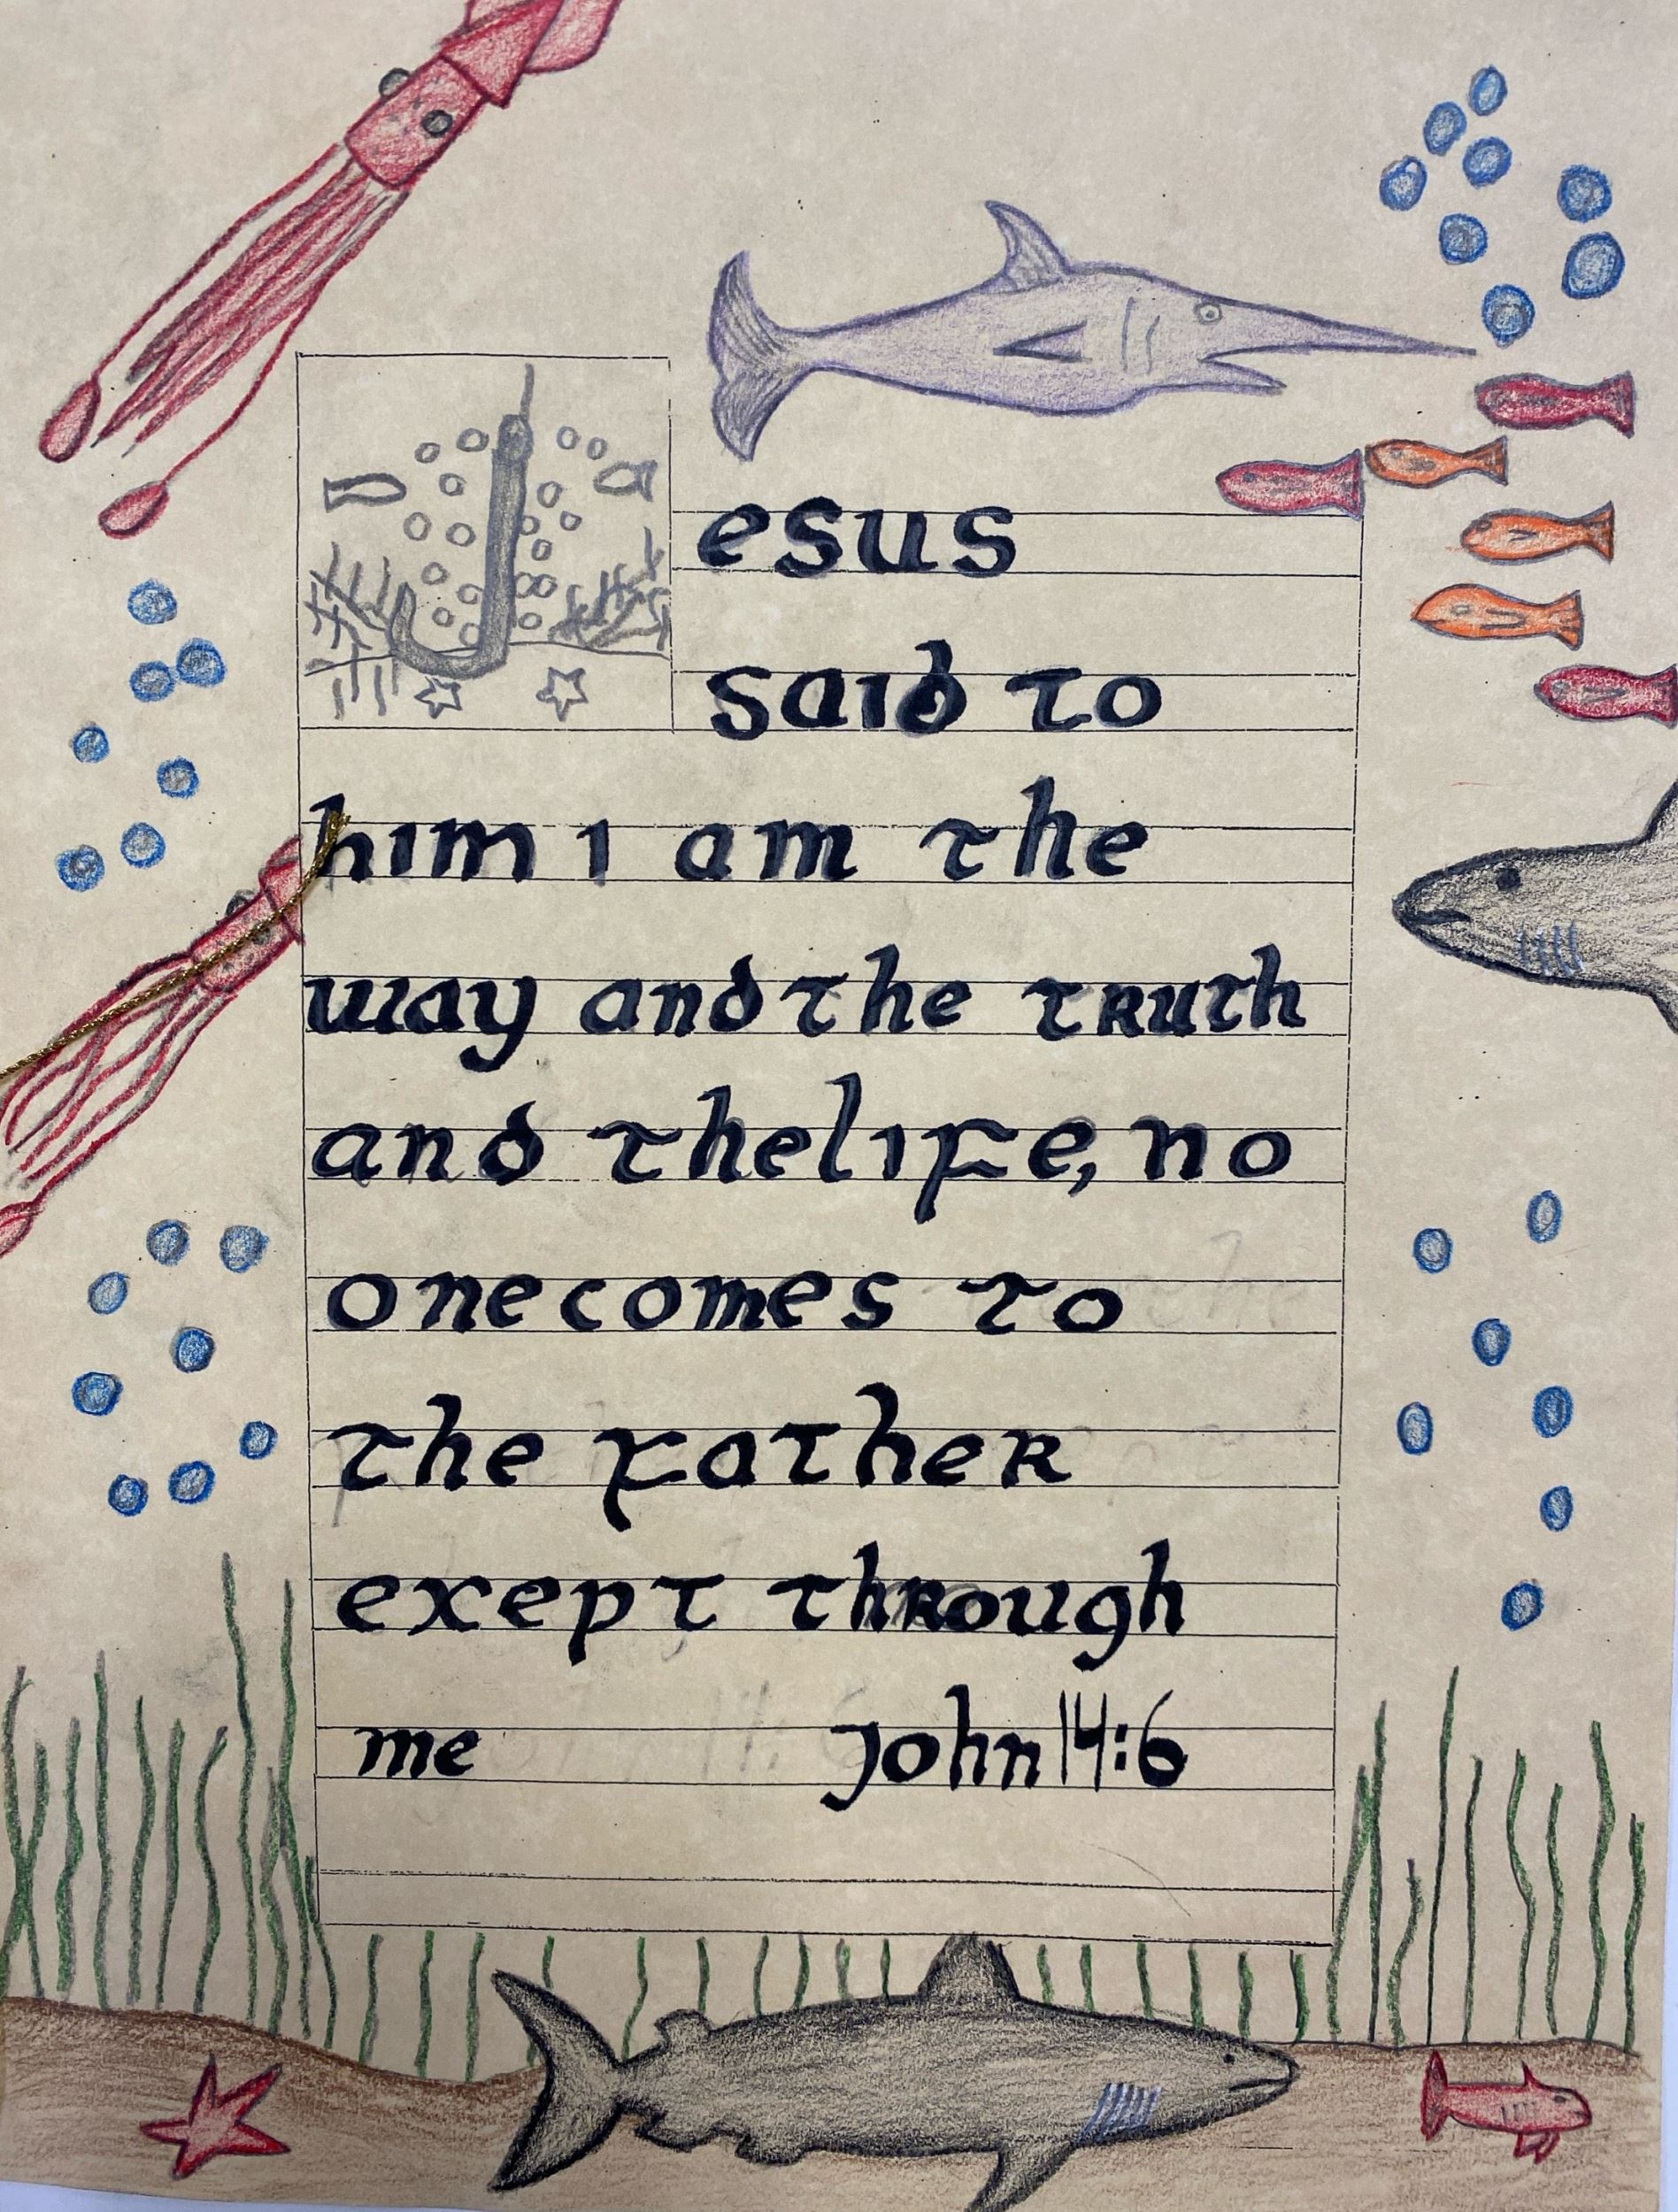 Jesus
said to
him I am the
way and the truth
and the life, no
one comes to
the father
exept through
me John 14:6